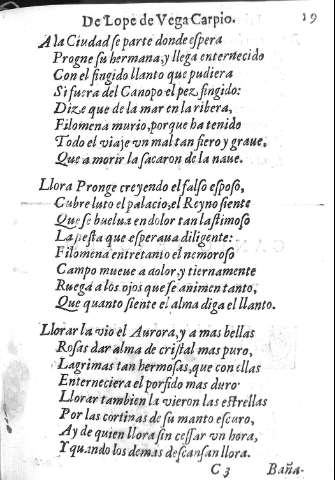 De Lope de Vega Carpio. 19
A la Ciudad se parte donde espera
Progne su hermana, y llega enternecido
Con el fingido llanto que pudiera
Si fuera del Canopo el pez fingido:
Dize que de la mar en la ribera,
Filomena murio, porque ha tenido
Todo el viaje vn mal tan fiero y graue,
Que a morir la sacaron de la naue.
Llora Pronge creyendo el falso esposo,
Cubre luto el palacio, el Reyno siente
Que se buelua en dolor tan lastimoso
La fiesta que esperaua diligente:
Filomena entretanto el nemoroso
Campo mueue a dolor, y tiernamente
Ruega a los ojos que se animen tanto,
Que quanto siente el alma diga el llanto.
Llorar la vio el Aurora, y a mas bellas
Rosas dar alma de cristal mas puro,
Lagrimas tan hermosas, que con ellas
Enterneciera el porfido mas duro
Llorar tambien la vieron las estrellas
Por las cortinas de su manto escuro,
Ay de quien llora sin cessar vn hora,
Y quando los demas descansan llora.
C 3 Baña-